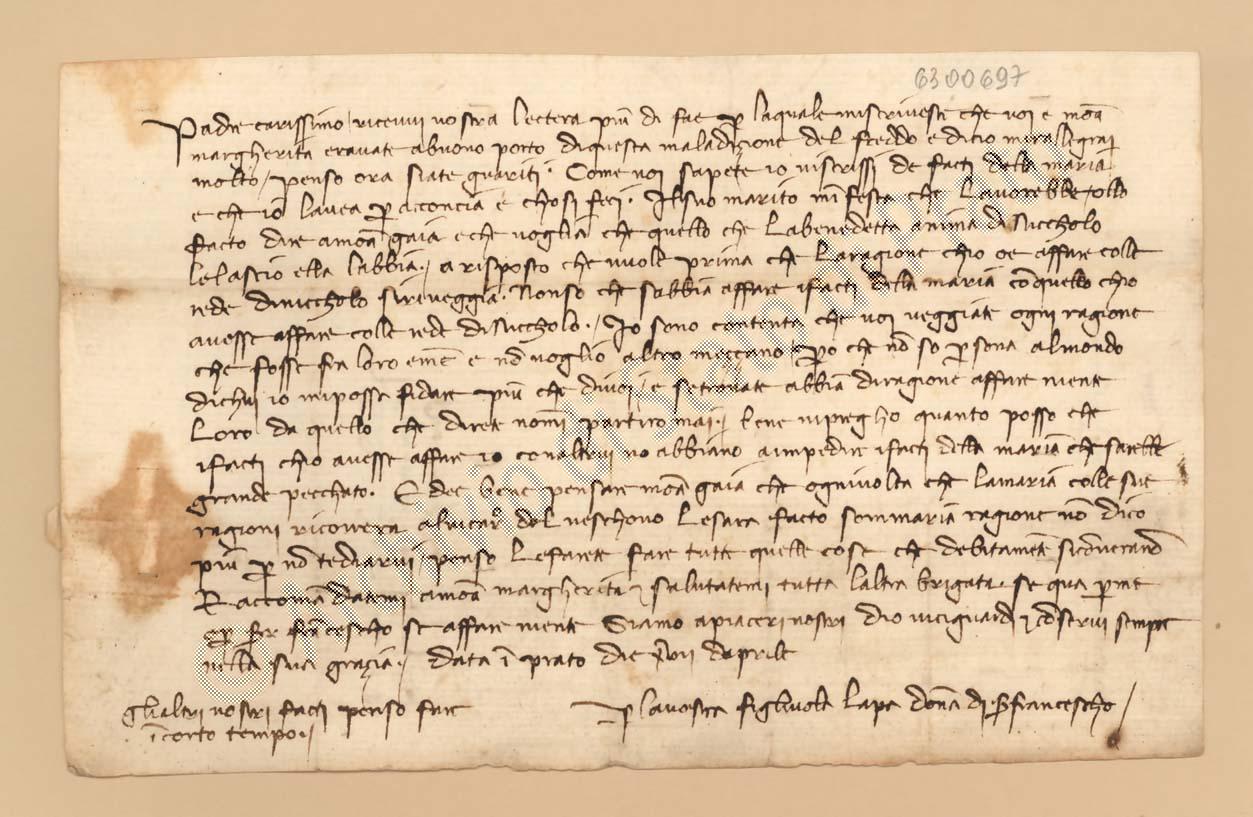 6300697
Padre carissimo / ricevvi vostra lectera più di fae p laquale miscrivesti che voi e moā
margherita eravate abuono porto diquesta maladizione del freddo e dicio mirallegrai
molto / penso ora siate guariti · Come voi sapete io viscrissi de facti della maria
e che io lavea p acconcia e chosi feci · Ilsuo marito
facto dire amoā gaia e che voglia che quello che Labenedetta anima di Niccholo
lelascio ella labbia · a risposto che vuole prima che Laragione chio oe affare colle
rede diniccholo siriveggia · Nonso che sabbia affare ifacti della maria cōquello chio
avesse affare colle rede diNiccholo · / Io sono contenta che voi veggiate ogni ragione
che fosse fra loro e nō voglio altro meççano / po che nō so psona almondo
dichui io miposse fidare più che divoi / e setrovate abbia diragione affare niente
Loro da quello che direte nōmi partiro mai · / bene vipregho quanto posso che
ifacti chio avesse affare io conaltrui no abbiano aimpedire ifacti della maria che sarebbe
grande pecchato · E dee bene pensare moā gaia che ognivolta che lamaria colle sue
ragioni ricorrera alvicar° del veschovo Lesara facto sommaria ragione nō dico
più p nō tediarvi / penso Lefarete fare tutte quelle cose che debitamēte
Raccomādatemi amoā margherita e salutatemi tutta laltra brigata · se qua pme
o p ser frācescho se affare niente Siamo apiaceri vostri dio viciguardi sempre
nella sua grazia · / data ī prato die xvii daprile
ghaltri vostri facti penso fare
ī corto tempo · /
P lavostra figlivola Lapa dōna di · S francescho /